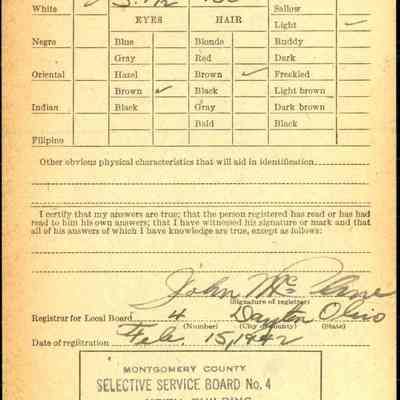 White Sallow
EYES HAIR Light ✓
Negro Blue Blonde Ruddy
Gray Red Dark
Oriental Hazel Brown ✓ Freckled
Brown ✓ Black Light brown
Indian Black Gray Dark brown
Bald Black
Filipino
Other obvious physical characteristics that will aid in identification
I certify that my answers are true; that the person registered has read or has had
read to him his own answers; that I have witnessed his signature or mark and that
all of his answers of which I have knowledge are true, except as follows:
John Mc
(Signature of registrar)
Registrar for Local Board 4 Dayton Ohio
(Number) (City or county) (State)
Date of registration Feb. 15, 1942
MONTGOMERY COUNTY
SELECTIVE SERVICE BOARD No. 4
BUILDING